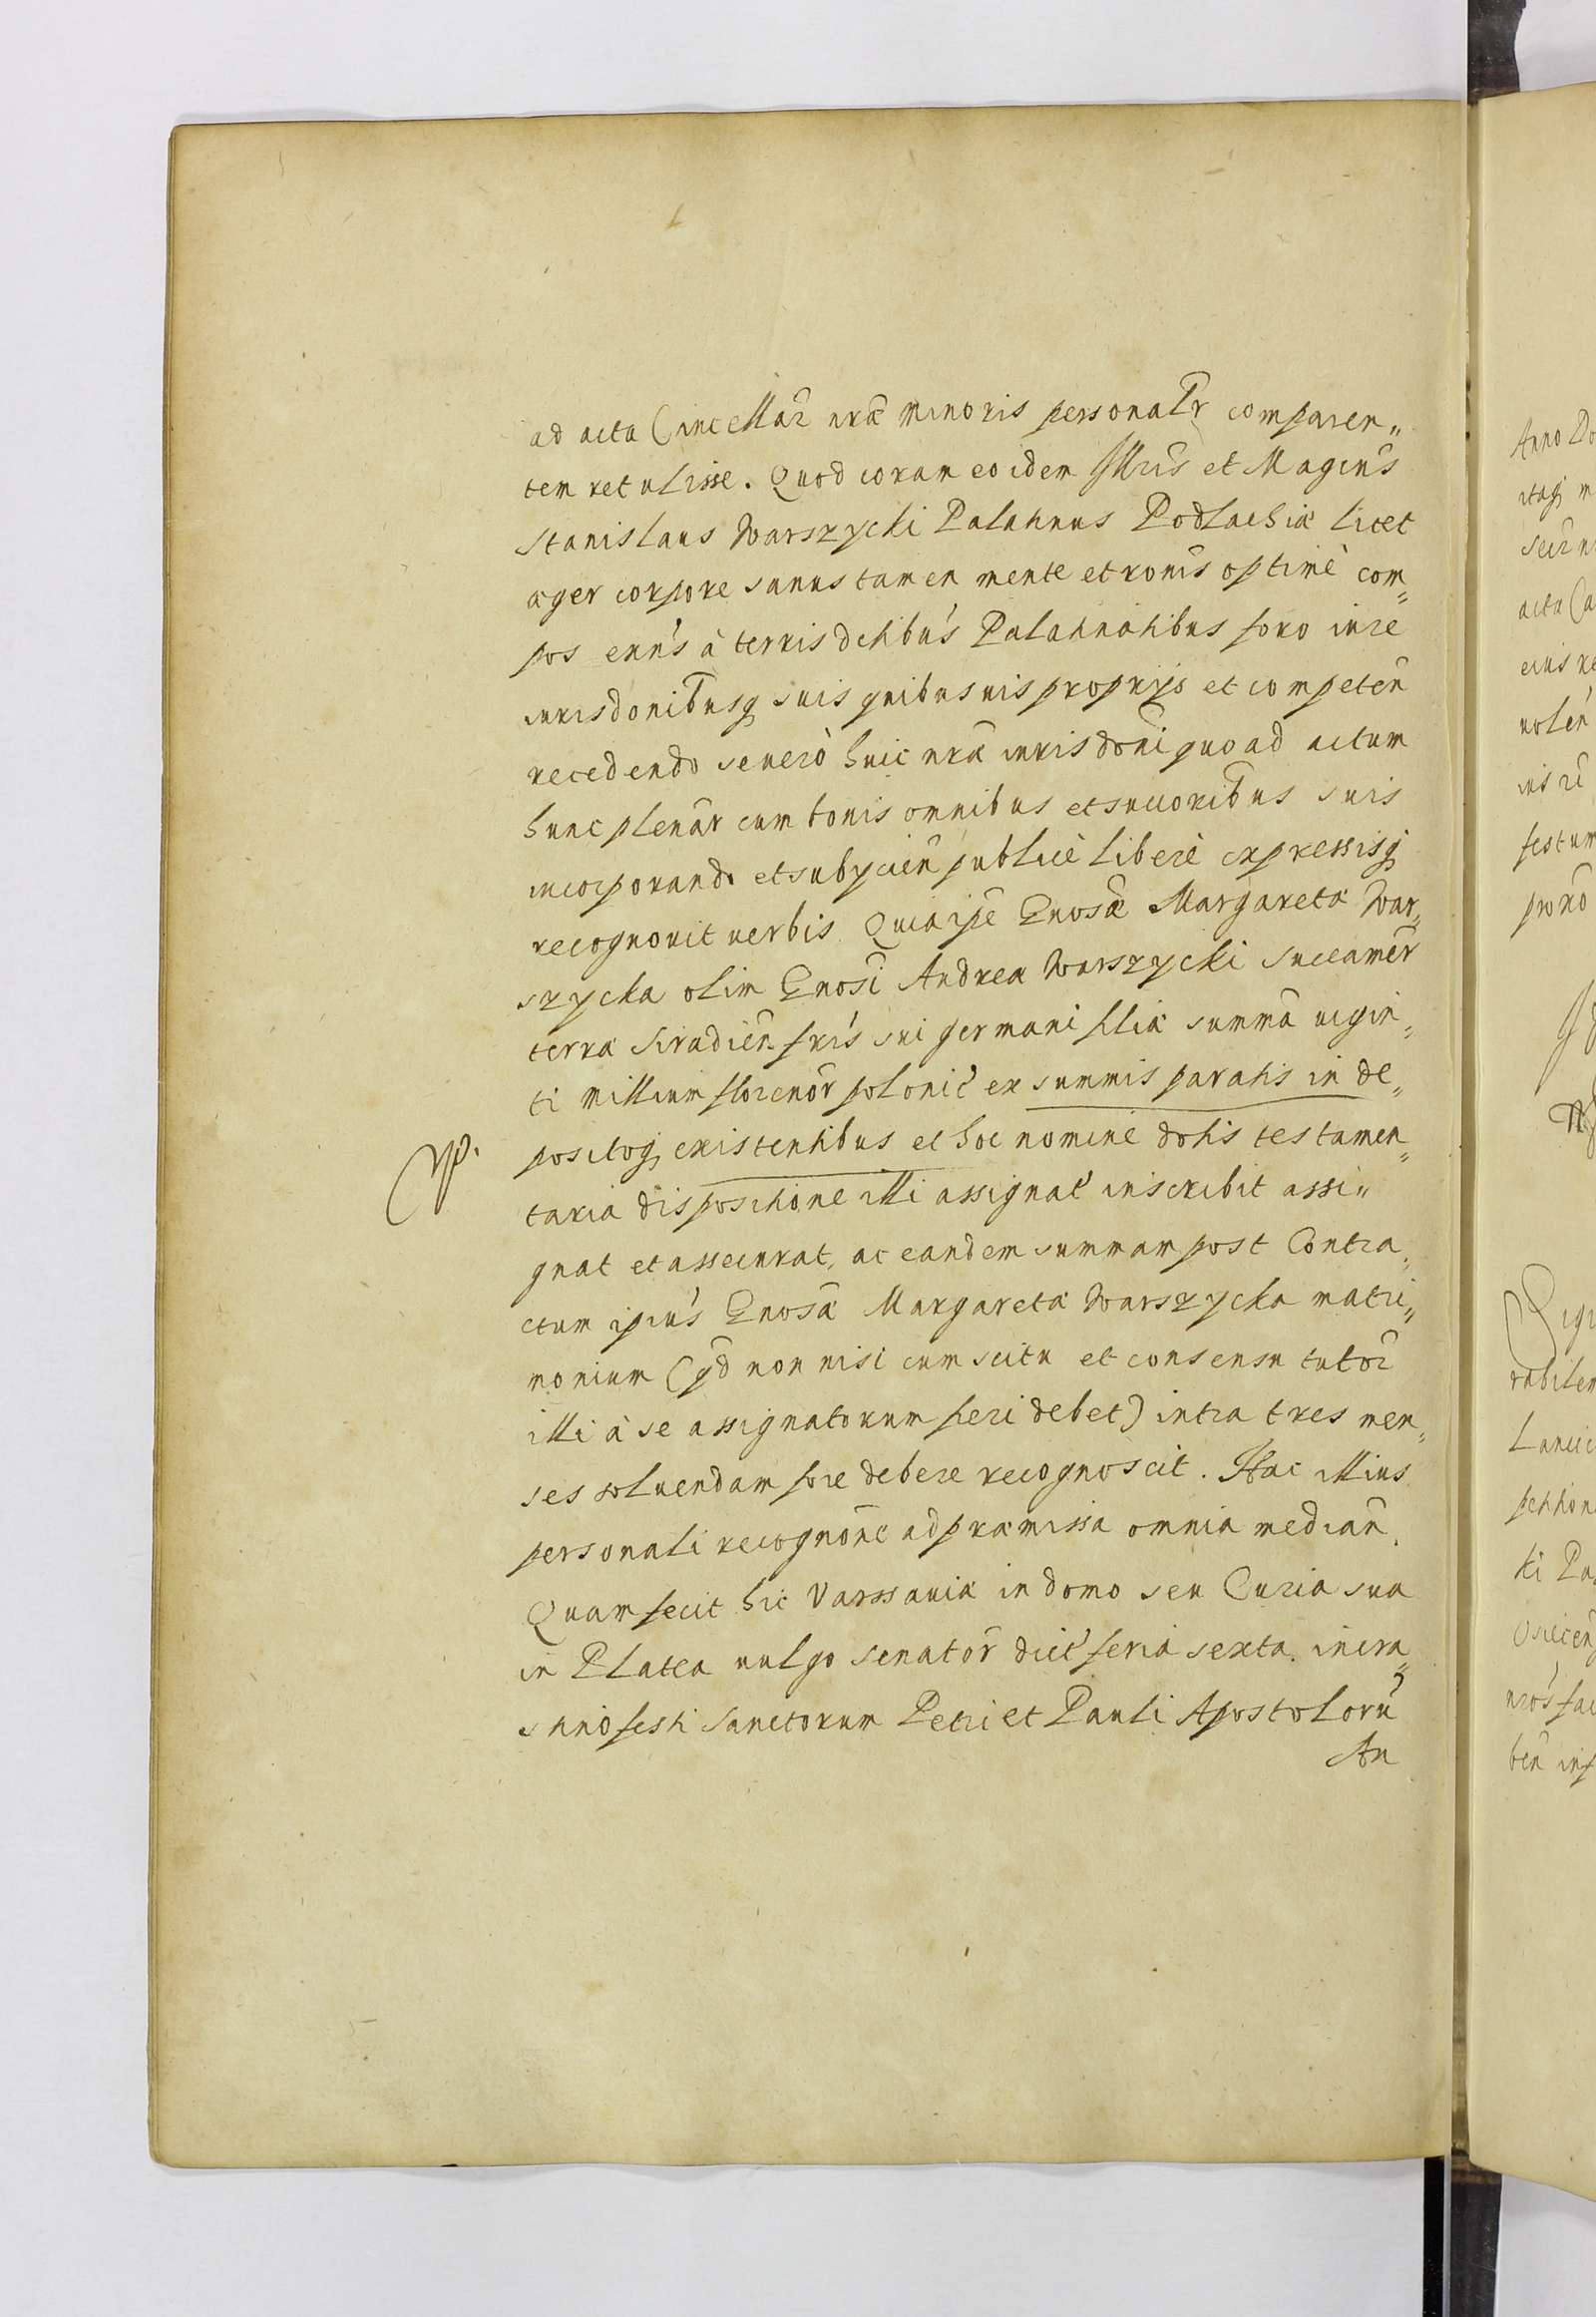 ad acta Cancellar nrae minoris personalr comparen„
tem retulisse. Quod coram eo idem Illris et Magcus
Stanislaus Warszycki Palatinus Podlachiae licet
aeger corpore sanus tamen mente et ronis optimè com„
pos enns à terris ditibus Palatinatibus foro iure
iurisdonibusq suis quibusuis proprijs et competen
recedendo se uerò huic nrae iurisdoni quoad actum
hunc plenar cum bonis omnibus et succoribus suis
incorporando et subijcien publicè liberè expressisq
recognouit uerbis. Quia ipse Gnosae Margaretae War„
szycka olim Gnosi Andreae Warszycki Succamer
terrae Siradien fris sui germani filiae summã uigin„
ti millium florenor polonic ex summis paratis in de„
positoq existentibus et hoc nomine dotis testamen„
taria dispositione illi assignat inscribit assi„
gnat et assecurat, ac eandem summam post Contra„
ctum ipius Gnosae Margaretae Warszycka matri„
monium (qd non nisi cum scitu et consensu tutor
illi à se assignatorum fieri debet) intra tres men„
ses soluendam fore debere recognoscit. Hac illius
personali recognone ad praemissa omnia median.
Quam fecit hic Varssauiae in domo seu Curia sua
in Platea uulgo Senator dict feria sexta in cra„
stino festi Sanctorum Petri et Pauli Apostolorũ
An
Anno Do
itaq m
acta Ca
eius re
uolen
festum
rabilem
petition
ki Pa
ben inf